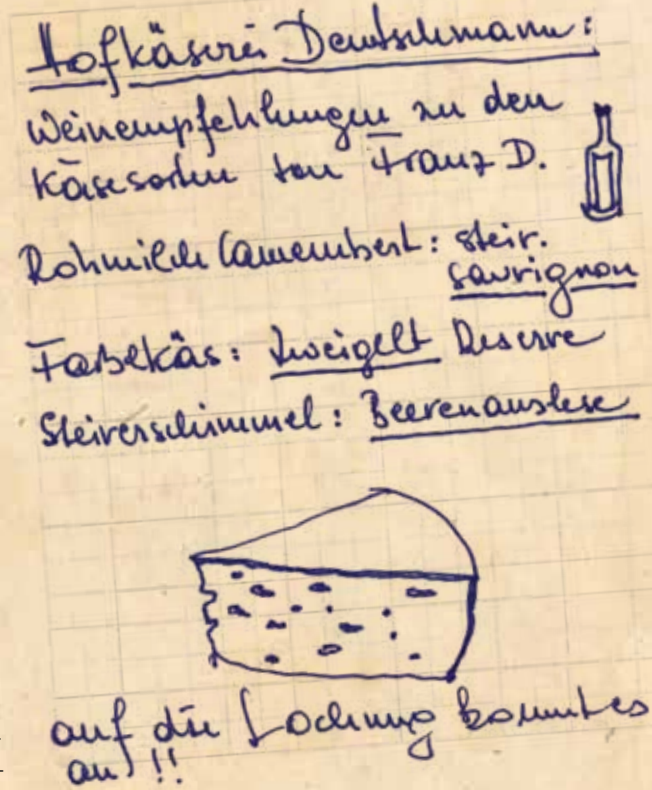 Hofkäserei Deutschmann:
Weinempfehlungen zu den
Käsesorten von Franz D.
Rohmilch Camembert: steir.
sauvignon
Farbekäs: Zweigelt Reserve
Steirerschimmel: Beerenauslese
auf die Lochung kommt es
an!!